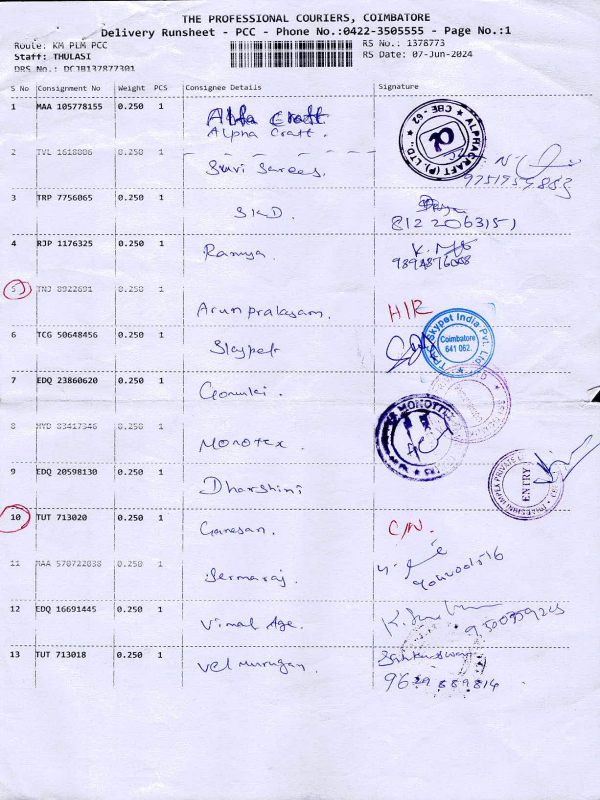 THE PROFESSIONAL COURIERS, COIMBATORE
Delivery Runsheet - PCC - Phone No.:0422-3505555 - Page No.:1
Route: KM PLM PCC
RS No.: 1378773
Staff: THULASI
RS Date: 07-Jun-2024
DRS No.: DCJB137877301
S No Consignment No Weight PCS Consignee Details Signature
1 MAA 105778155 0.250 1 Alpha Craft
Alpha Craft.
ALPHACRAFT (P) LTD * CBE - 62 *
2 TVL 1618806 0.250 1 Sruvi Sarees,
9751959883
3 TRP 7756065 0.250 1 SKD.
8122063151
4 RJP 1176325 0.250 1 Ramya.
5 TNJ 8922691 0.250 1 Arunprakasam. HIR
6 TCG 50648456 0.250 1 Skypet
Skypet India Pvt. Ltd.
Coimbatore
641 062.
7 EDQ 23860620 0.250 1 Gomuki.
8 HYD 83417346 0.250 1 Monotex.
9 EDQ 20598130 0.250 1 Dharshini
DHARSHINI IMPEX PRIVATE
ENTRY
10 TUT 713020 0.250 1 Ganesan. C/N.
11 MAA 570722838 0.250 1 Jermaraj.
12 EDQ 16691445 0.250 1 Vimal Age.
9500759265
13 TUT 713018 0.250 1 Vel murugan.